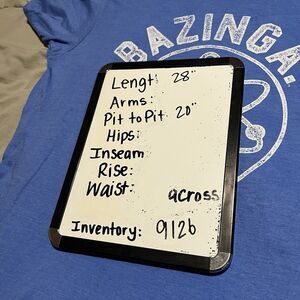 BAZINGA.
Lengt 28"
Arms:
Pit to Pit 20"
Hips:
Inseam
Rise:
Waist: across
Inventory: 9126